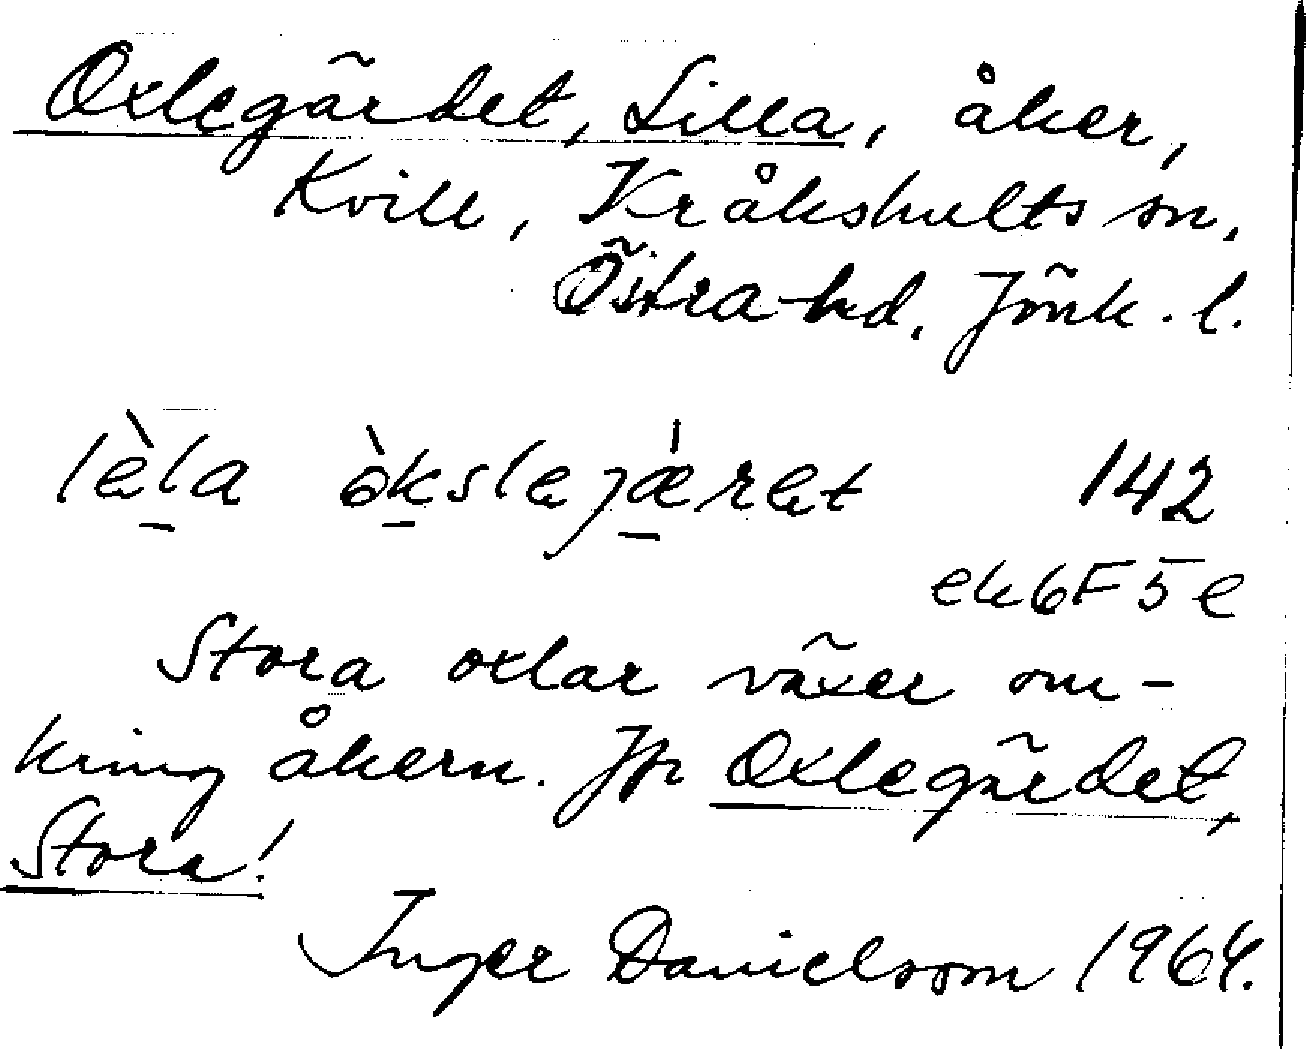 Oxlegärdet, Lilla, åker,
Kvill, Kråkshults sn,
Östra hd, Jönk. l.
lèla òkslejæ̀ret 142
ek 6F5e
Stora oxlar växer om-
kring åkern. Jfr Oxlegärdet,
Stora!
Inger Danielsson 1964.